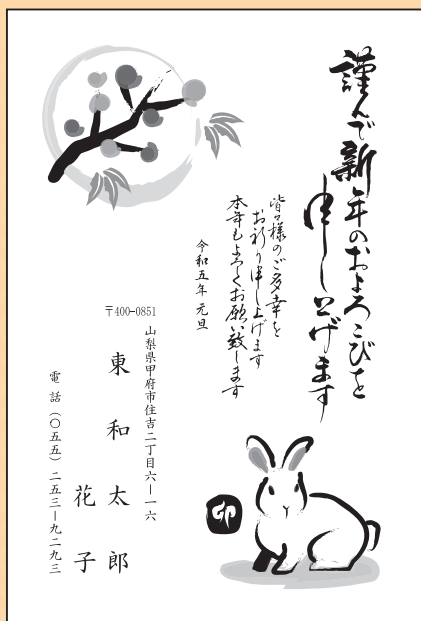 謹んで新年のおよろこびを
申し上げます
皆々様のご多幸を
お祈り申し上げます
本年もよろしくお願い致します
令和五年 元旦
〒400-0851
山梨県甲府市住吉二丁目六ー一六
東 和太郎
花子
電話(〇五五)二五三ー九二九三
卯